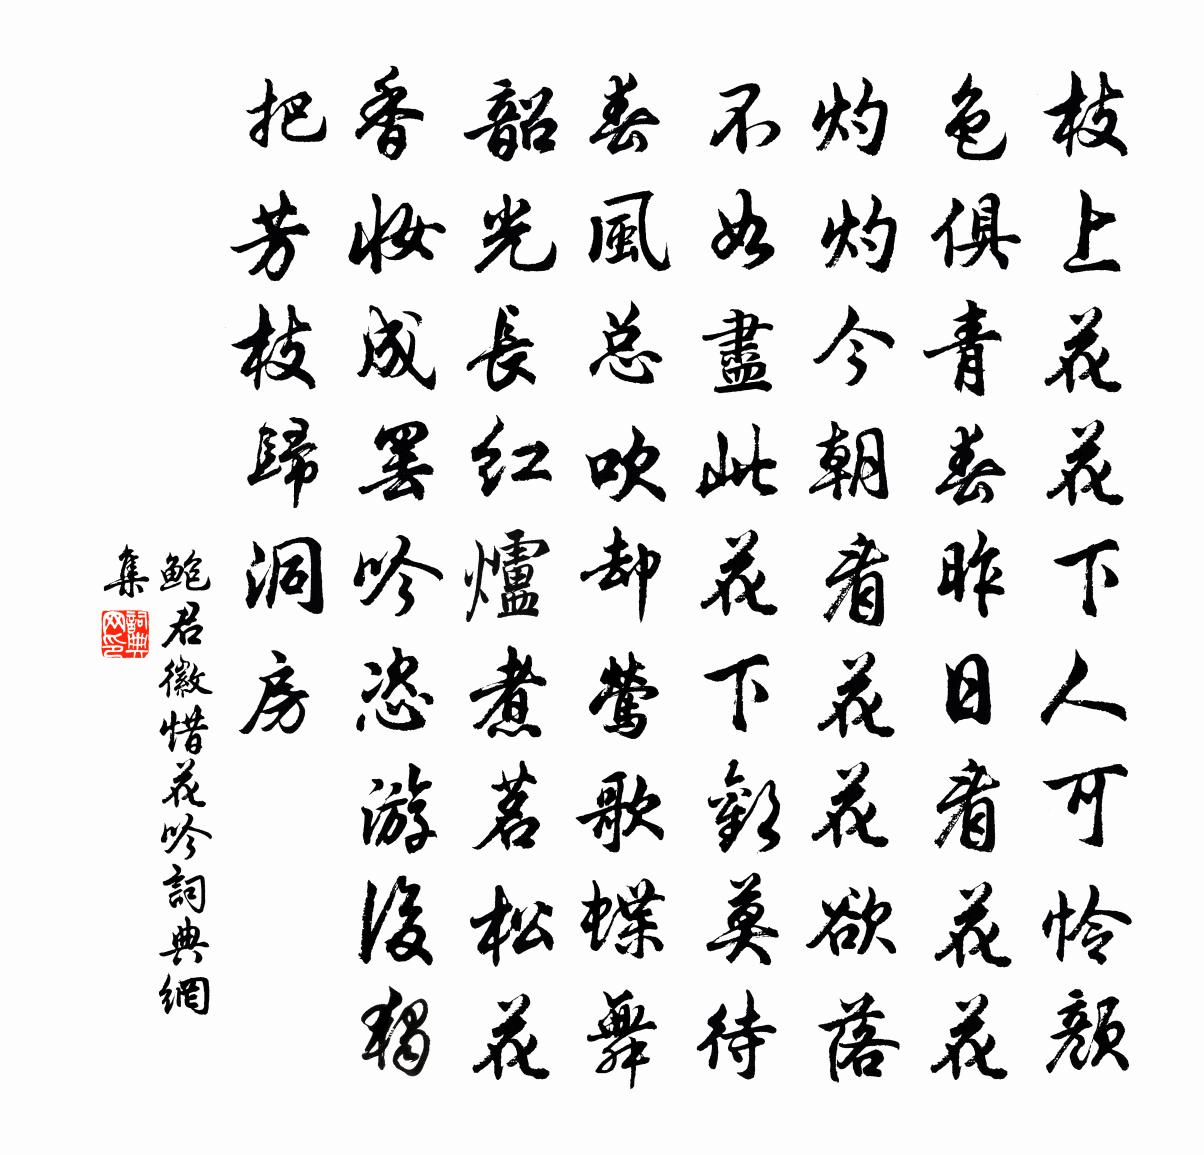 枝上花花下人可憐顔
色俱青春昨日看花花
灼灼今朝看花花欲落
不如盡此花下歡莫待
春風总吹却鶯歌蝶舞
韶光長红爐煮茗松花
香妝成罢吟恣游後獨
把芳枝歸洞房
鲍君徽惜花吟詞典網
集
詞典网印